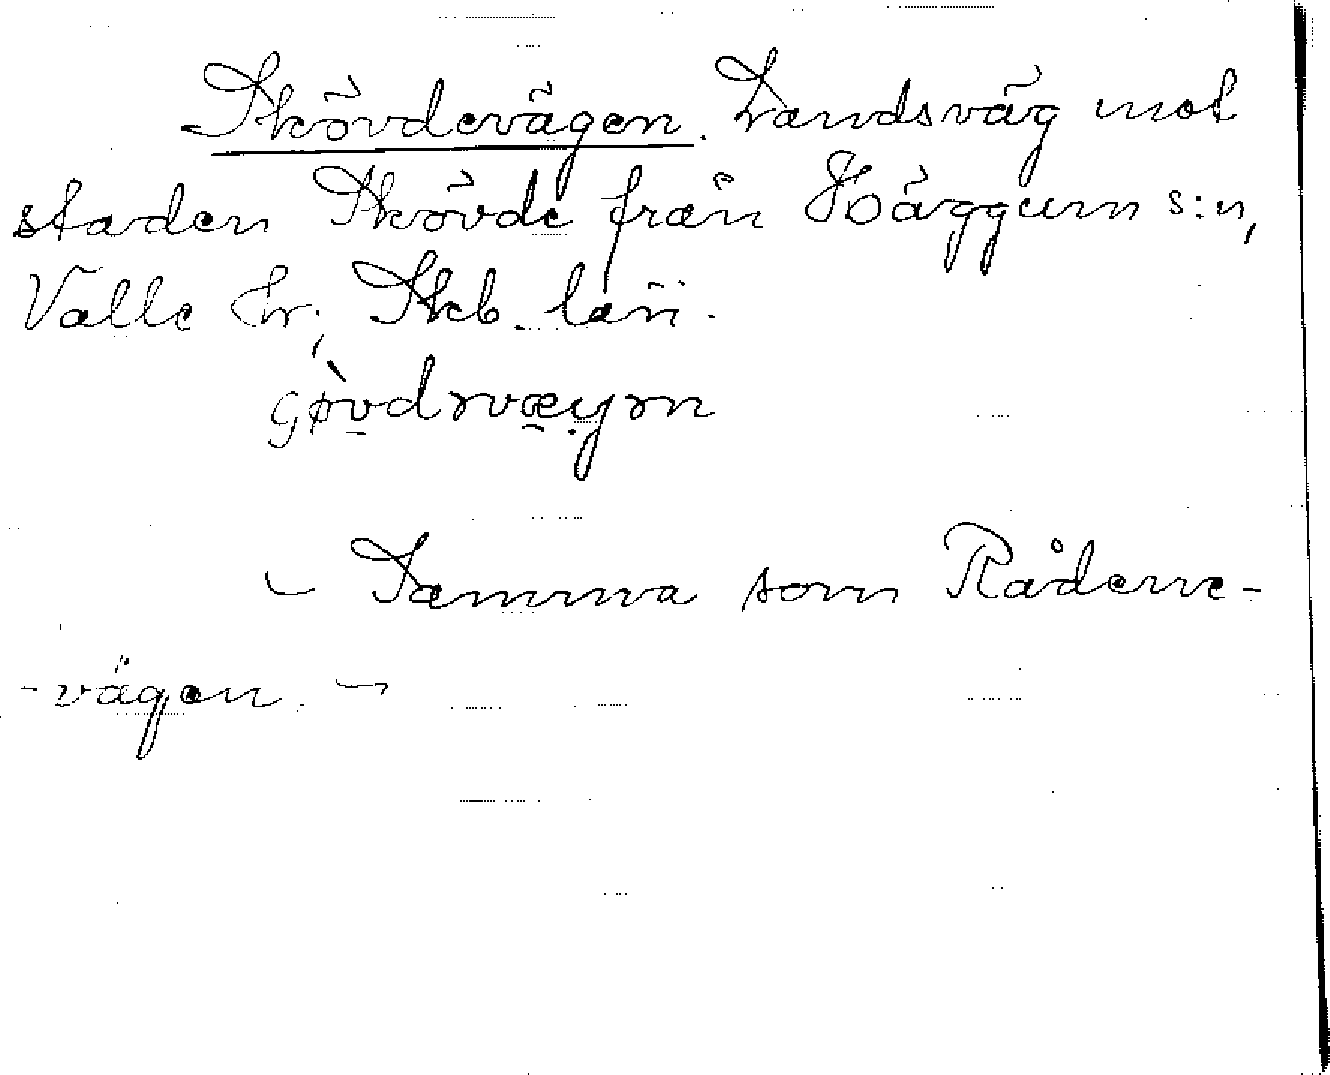 Skövdevägen. Landsväg mot
staden Skövde från Häggum s:n,
Valle hr, Skb. län.
– Samma som Rådene-
-vägen. –